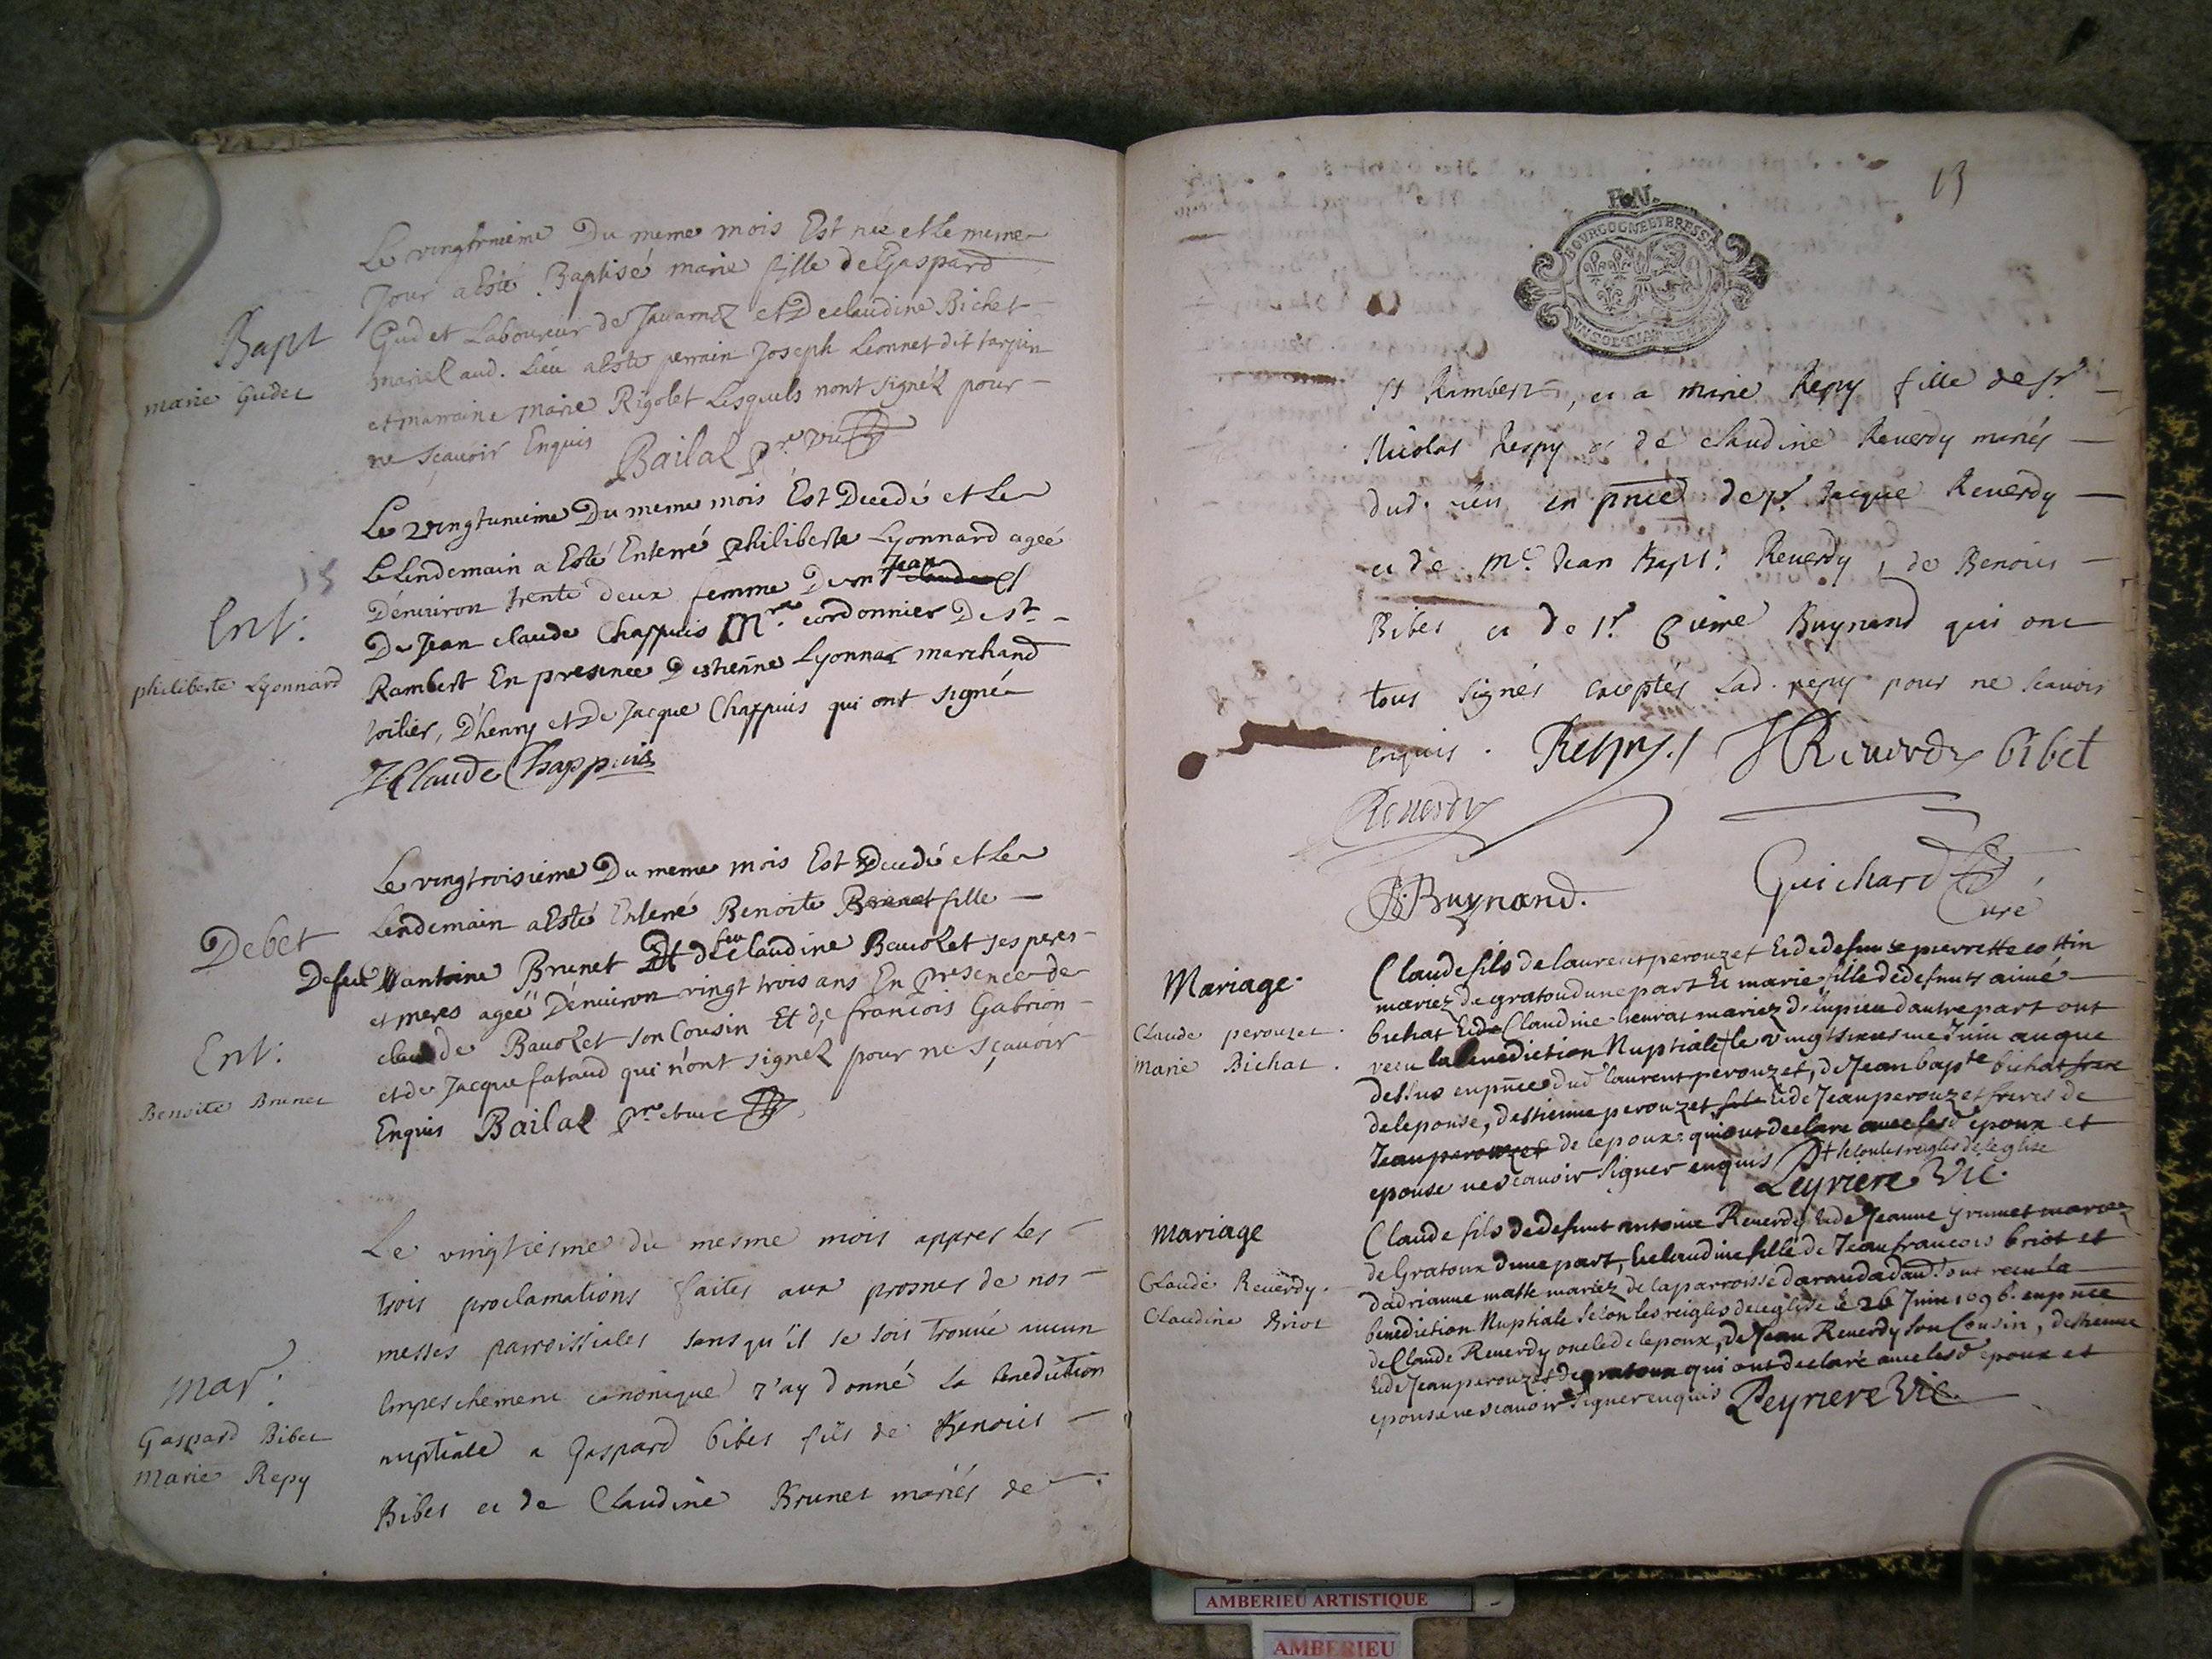 Le vingtunieme Du meme mois Est née et le meme
Jour a Esté Baptisé marie fille de Gaspard
Bapt
Gudet Laboureur de Javarnoz et De claudine Bichet
marie Gudet
mariez aud. Lieu a Esté perrain Joseph Leonnet dit tarpin
et marraine marie Rigolet Lesquels nont signéz pour
ne sçauoir Enquis Bailal pre vic
Le vingtunieme Du meme mois Est Decedé et le
Le Lendemain a Esté Enterré philiberte Lyonnard agée
15
Dénuiron trente deux femme De
Jean
Ent:
De Jean claude Chappuis Mre cordonnier De st
philiberte Lyonnard
Rambert En presence Destienne Lyonnar marchand
toilier, D'henry et De Jacque Chappuis qui ont signé
JClaude Chappuis
Le vingtroisieme Du meme mois Est Decedé et le
Lendemain a Esté Enterré Benoite Brunet fille
Debet
Defeu antoine Brunet Et de feu claudine Bauozet ses peres
et meres ageé Dénuiron vingt trois ans En presence de
claude Bauozet son Cousin Et de francois Gabrion
Ent:
et de Jacque fataud qui n'ont signéz pour ne sçauoir
Benoite Brunet
Enquis Bailal
Le vingtiesme du mesme mois appres les
trois proclamations faites aux prosnes de nos
messes parroissiales sans qu'il se soit trouué aucun
mar:
Empeschement canonique J'ay donné la benediction
Gaspard Bibet
nuptiale a Gaspard bibet fils de Benoict
marie Repy
Bibet et de Claudine Brunet mariés de
13
BOURGOGNE ET BRESSE
St Rambert, et a marie Repy fille de sr
Nicolas Respy et de claudine Reuerdy mariés
dud. lieu en pnce de sr Jacque Reuerdy
et de Me Jean Bapt. Reuerdy, de Benoict
Bibet et de sr Buynand qui ont
tous signés exceptés Lad. repy pour ne scauoir
enquis. Respy Reuerdy bibet
Reuerdy
Buynand. Guichard
Curé
Mariage.
Claude perouzet.
Marie Bichat.
Claude fils de laurent perouzet Et de defunte pierrette cottin
mariez de gratoud une part Et marie fille de defunts aimé
bichat Et de Claudine mariez dautre part ont
receu la benediction Nuptiale le Juin an que
dessus en pnce dud laurent perouzet, de Jean bapte bichat frere
de lepouse, destienne perouzet Et de Jean perouzet freres de
Jean perouzet de lepoux qui ont declaré auec lesd epoux et
epouse ne scauoir signer enquis + selon les reigles de leglise
Leyriere Vic.
Mariage
Claude Reuerdy.
Claudine Briot
Claude fils de defunt antoine Reuerdy Et de Jeanne grumet mariez
de Gratoux dune part, Et claudine fille de Jean francois briot et
dadrianne matte mariez de la parroisse darandadaud. ont receu la
benediction Nuptiale selon les reigles de leglise le 26 Juin 1696. en pnce
de Claude Reuerdy oncle de lepoux, de Jean Reuerdy son Cousin, destienne
Et de Jean perouzet de gratoux qui ont declaré auec lesd epoux et
epouse ne scauoir signer enquis Leyriere Vic.
AMBERIEU ARTISTIQUE
AMBERIEU